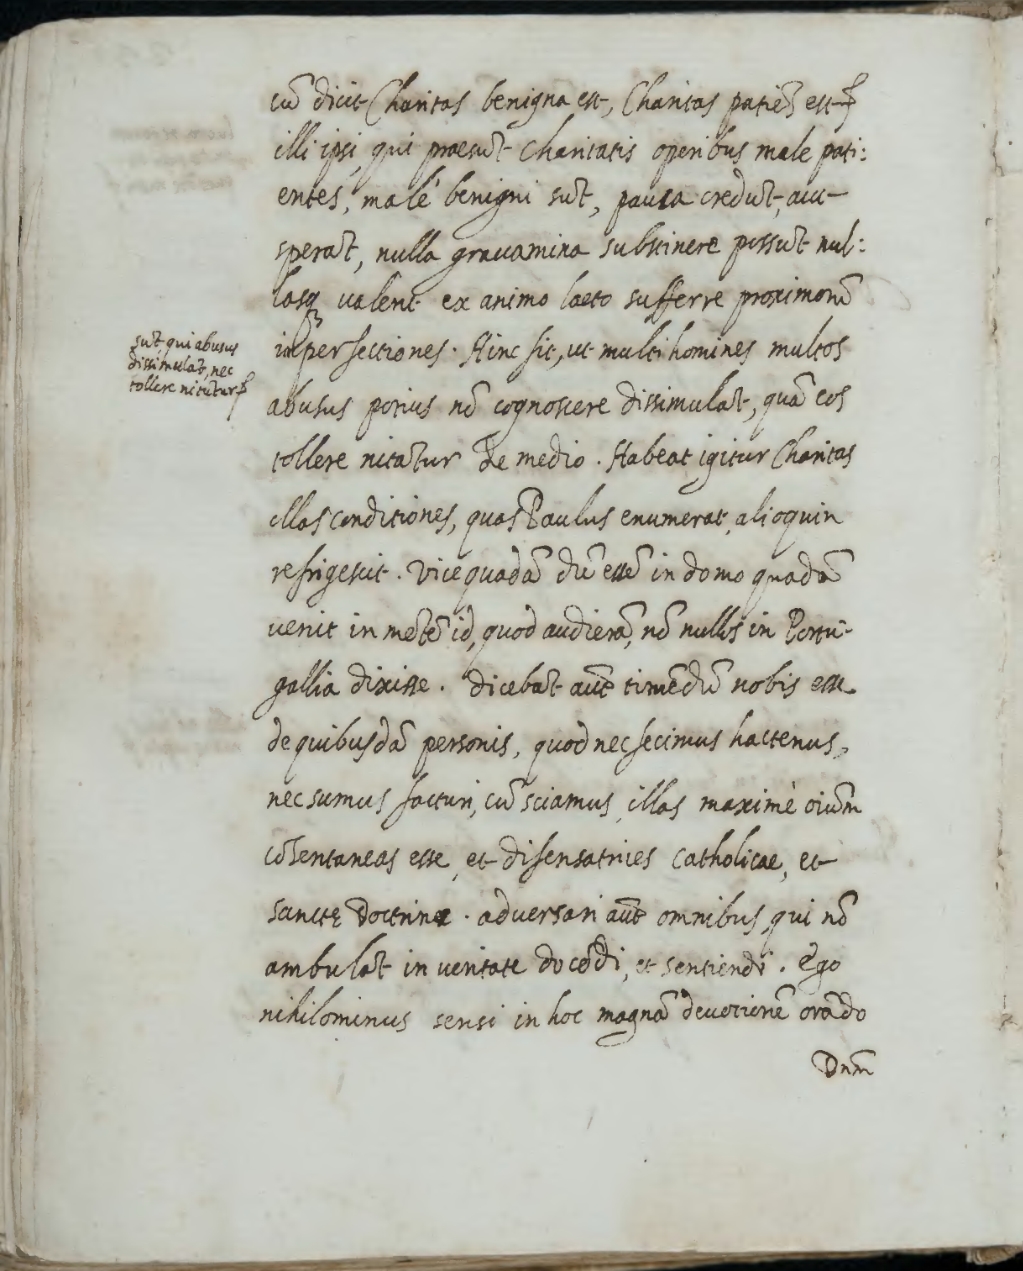 cū dicit Charitas benigna est, Charitas patiēs est
illi ipsi, qui praesūt Charitatis operibus male pati:
entes, malè benigni sūt, pauca credūt,
sperāt, nulla grauamina substinere possūt nul:
lasq valent ex animo laeto sufferre proximorū
imperfectiones. Hinc fit, ut multi homines multos
abusus potius nō cognoscere dissimulāt, quā eos
tollere nitātur de medio. Habeat igitur Charitas
illas conditiones, quas Paulus enumerat, alioquin
refrigescit. Vice quadā dū essē in domo quadā
uenit in mētē id, quod audierā, nō nullos in Portu-
gallia dixisse. dicebāt aūt timēdū nobis esse
de quibusdā personis, quod nec fecimus hactenus,
nec sumus facturi, cū sciamus, illas maximè oiūm
cōsentaneas esse, et difensatrices catholicae, et
sanctę doctrinæ. aduersari aūt omnibus, qui nō
ambulāt in ueritate docēdi, et sentiendi. Ego
nihilominus sensi in hoc magnā deuotionē orādo
Dnm̄
sūt qui abusus
dissimulāt, nec
tollere nitūtur